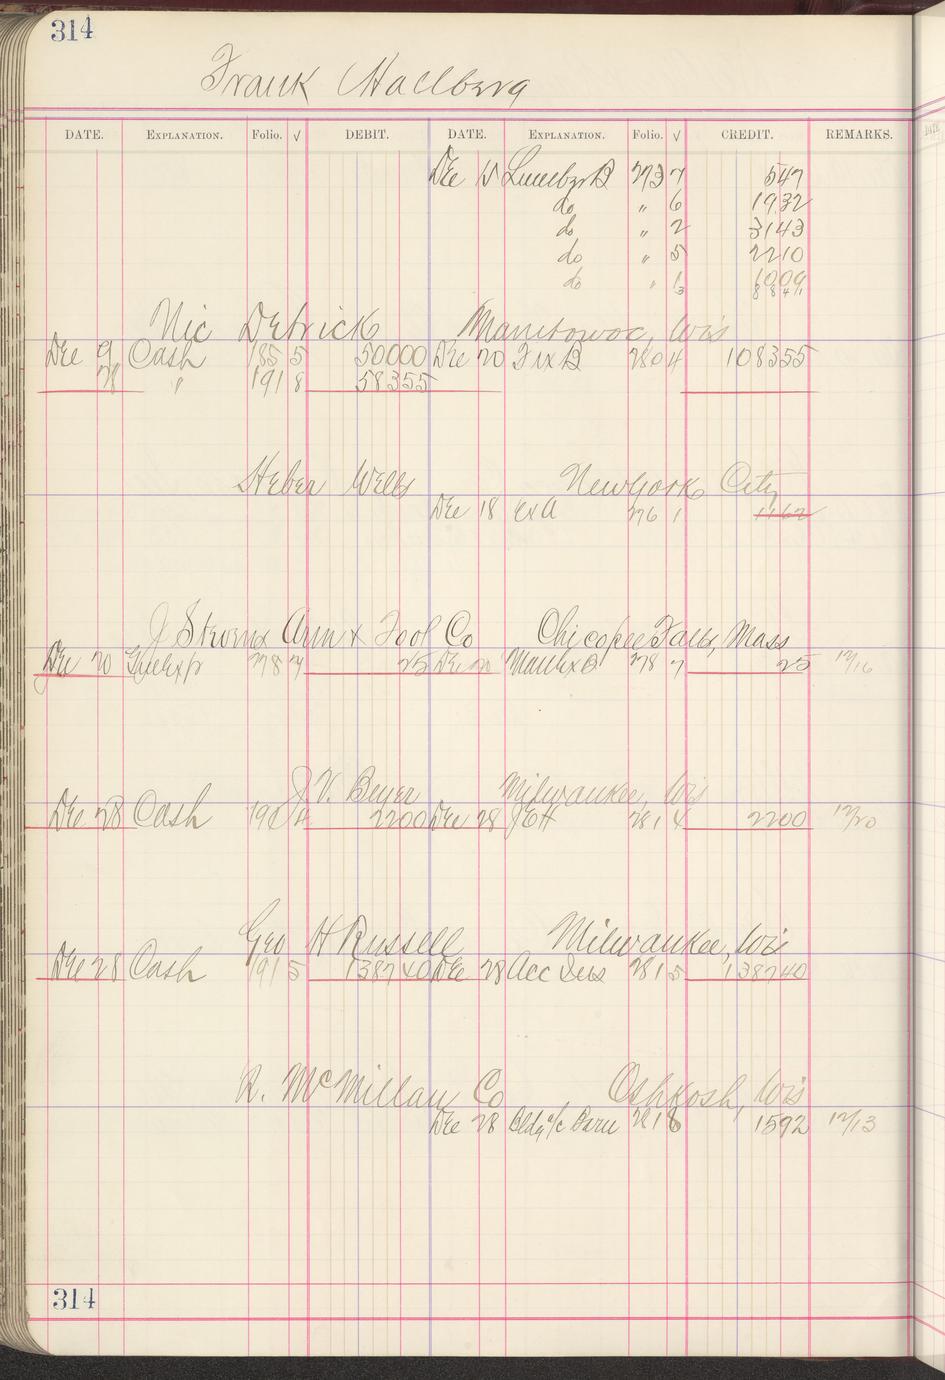 314
Frank Hallberg
DATE. EXPLANATION. Folio. √ DEBIT. DATE. EXPLANATION. Folio. √ CREDIT. REMARKS.
Dec 15 Lumber B 273 7 547
do " 6 1932
do " 2 3143
do " 5 2210
do " 1 1009
8841
Nic Detrick Manitowoc, Wis
Dec 9 Cash 185 5 50000 Dec 20 Fix B 280 4 108355
28 " 191 8 58355
Heber Wells New York City
Dec 18 Ex A 276 1 1162
J Stevens Arm & Tool Co Chicopee Falls, Mass
Dec 20 278 7 25 Dec 20 Man Ex B 278 7 25 12/16
J. V. Beyer Milwaukee, Wis
Dec 28 Cash 2200 Dec 28 281 4 2200 12/20
Geo H Russell Milwaukee, Wis
Dec 28 Cash 191 5 138740 Dec 28 Acc Ins 281 5 138740
R. McMillan Co Oshkosh, Wis
Dec 28 Bldg a/c Barn 281 8 1592 12/13
314